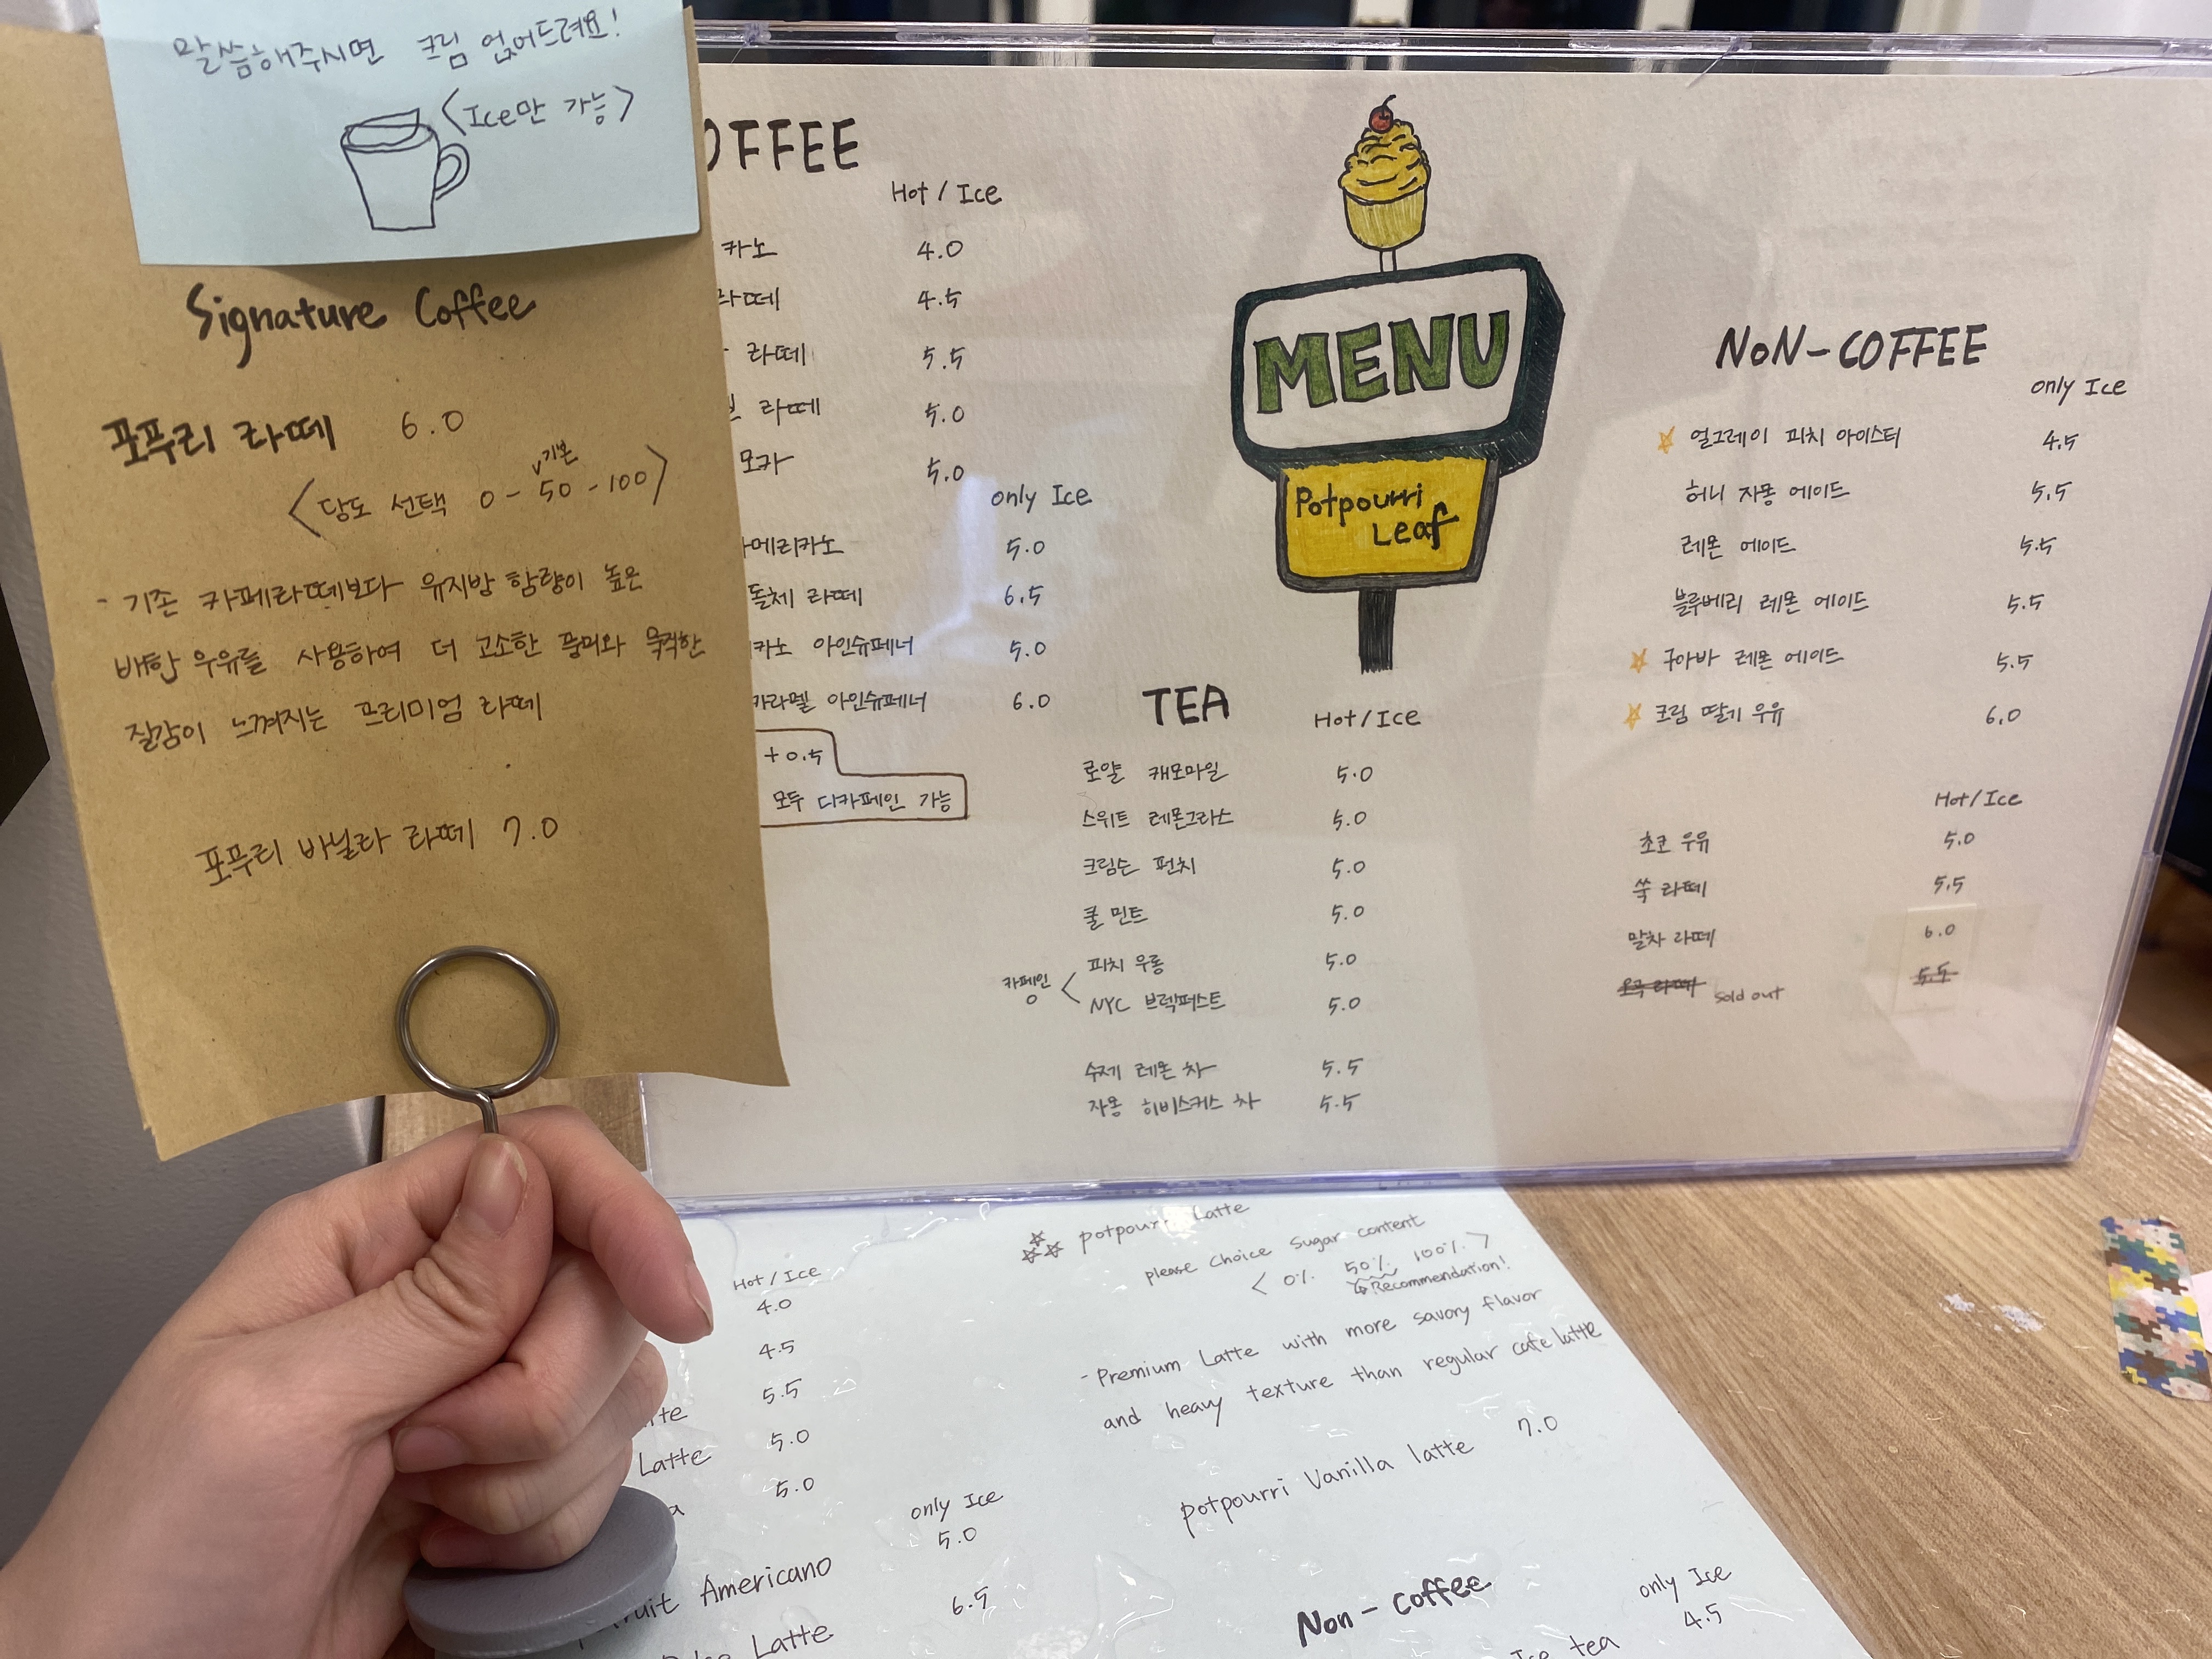 말씀해주시면 크림 얹어드려요!
<Ice만 가능>
Signature Coffee
포푸리 라떼 6.0
v기본
<당도 선택 0 - 50 - 100>
- 기존 카페라떼보다 유지방 함량이 높은
배합 우유를 사용하여 더 고소한 풍미와 묵직한
질감이 느껴지는 프리미엄 라떼
포푸리 바닐라 라떼 7.0
OFFEE
Hot / Ice
카노 4.0
라떼 4.5
라떼 5.5
브 라떼 5.0
모카 5.0
only Ice
아메리카노 5.0
돌체 라떼 6.5
카노 아인슈페너 5.0
카라멜 아인슈페너 6.0
+0.5
모두 디카페인 가능
MENU
Potpourri
Leaf
TEA
Hot/Ice
로얄 캐모마일 5.0
스위트 레몬그라스 5.0
크림슨 펀치 5.0
쿨 민트 5.0
카페인 o <
피치 우롱 5.0
NYC 브렉퍼스트 5.0
수제 레몬 차 5.5
자몽 히비스커스 차 5.5
NON-COFFEE
only Ice
얼그레이 피치 아이스티 4.5
허니 자몽 에이드 5.5
레몬 에이드 5.5
블루베리 레몬 에이드 5.5
구아바 레몬 에이드 5.5
크림 딸기 우유 6.0
Hot/Ice
초코 우유 5.0
쑥 라떼 5.5
말차 라떼 6.0
라떼 sold out 5.5
Hot/Ice
4.0
4.5
tte 5.5
Latte 5.0
a 5.0
only Ice
5.0
ruit Americano
6.5
Latte
potpourri Latte
please choice sugar content
< 0% 50% 100% >
↳Recommendation!
- Premium Latte with more savory flavor
and heavy texture than regular cafe latte
potpourri Vanilla latte 7.0
Non - Coffee
only Ice
Ice tea 4.5